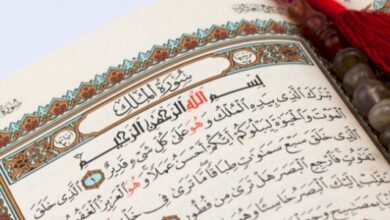 سُورَةُ الْمُلْكِ
بِسْمِ اللَّهِ الرَّحْمَٰنِ الرَّحِيمِ
تَبَٰرَكَ الَّذِي بِيَدِهِ الْمُلْكُ وَهُوَ عَلَىٰ كُلِّ شَيْءٍ قَدِيرٌ ۝ الَّذِي خَلَقَ
الْمَوْتَ وَالْحَيَوٰةَ لِيَبْلُوَكُمْ أَيُّكُمْ أَحْسَنُ عَمَلًا وَهُوَ الْعَزِيزُ الْغَفُورُ
الَّذِي خَلَقَ سَبْعَ سَمَٰوَٰتٍ طِبَاقًا مَا تَرَىٰ فِي خَلْقِ
تَفَٰوُتٍ فَارْجِعِ الْبَصَرَ هَلْ تَرَىٰ مِنْ فُطُورٍ
إِلَيْكَ الْبَصَرُ خَاسِئًا